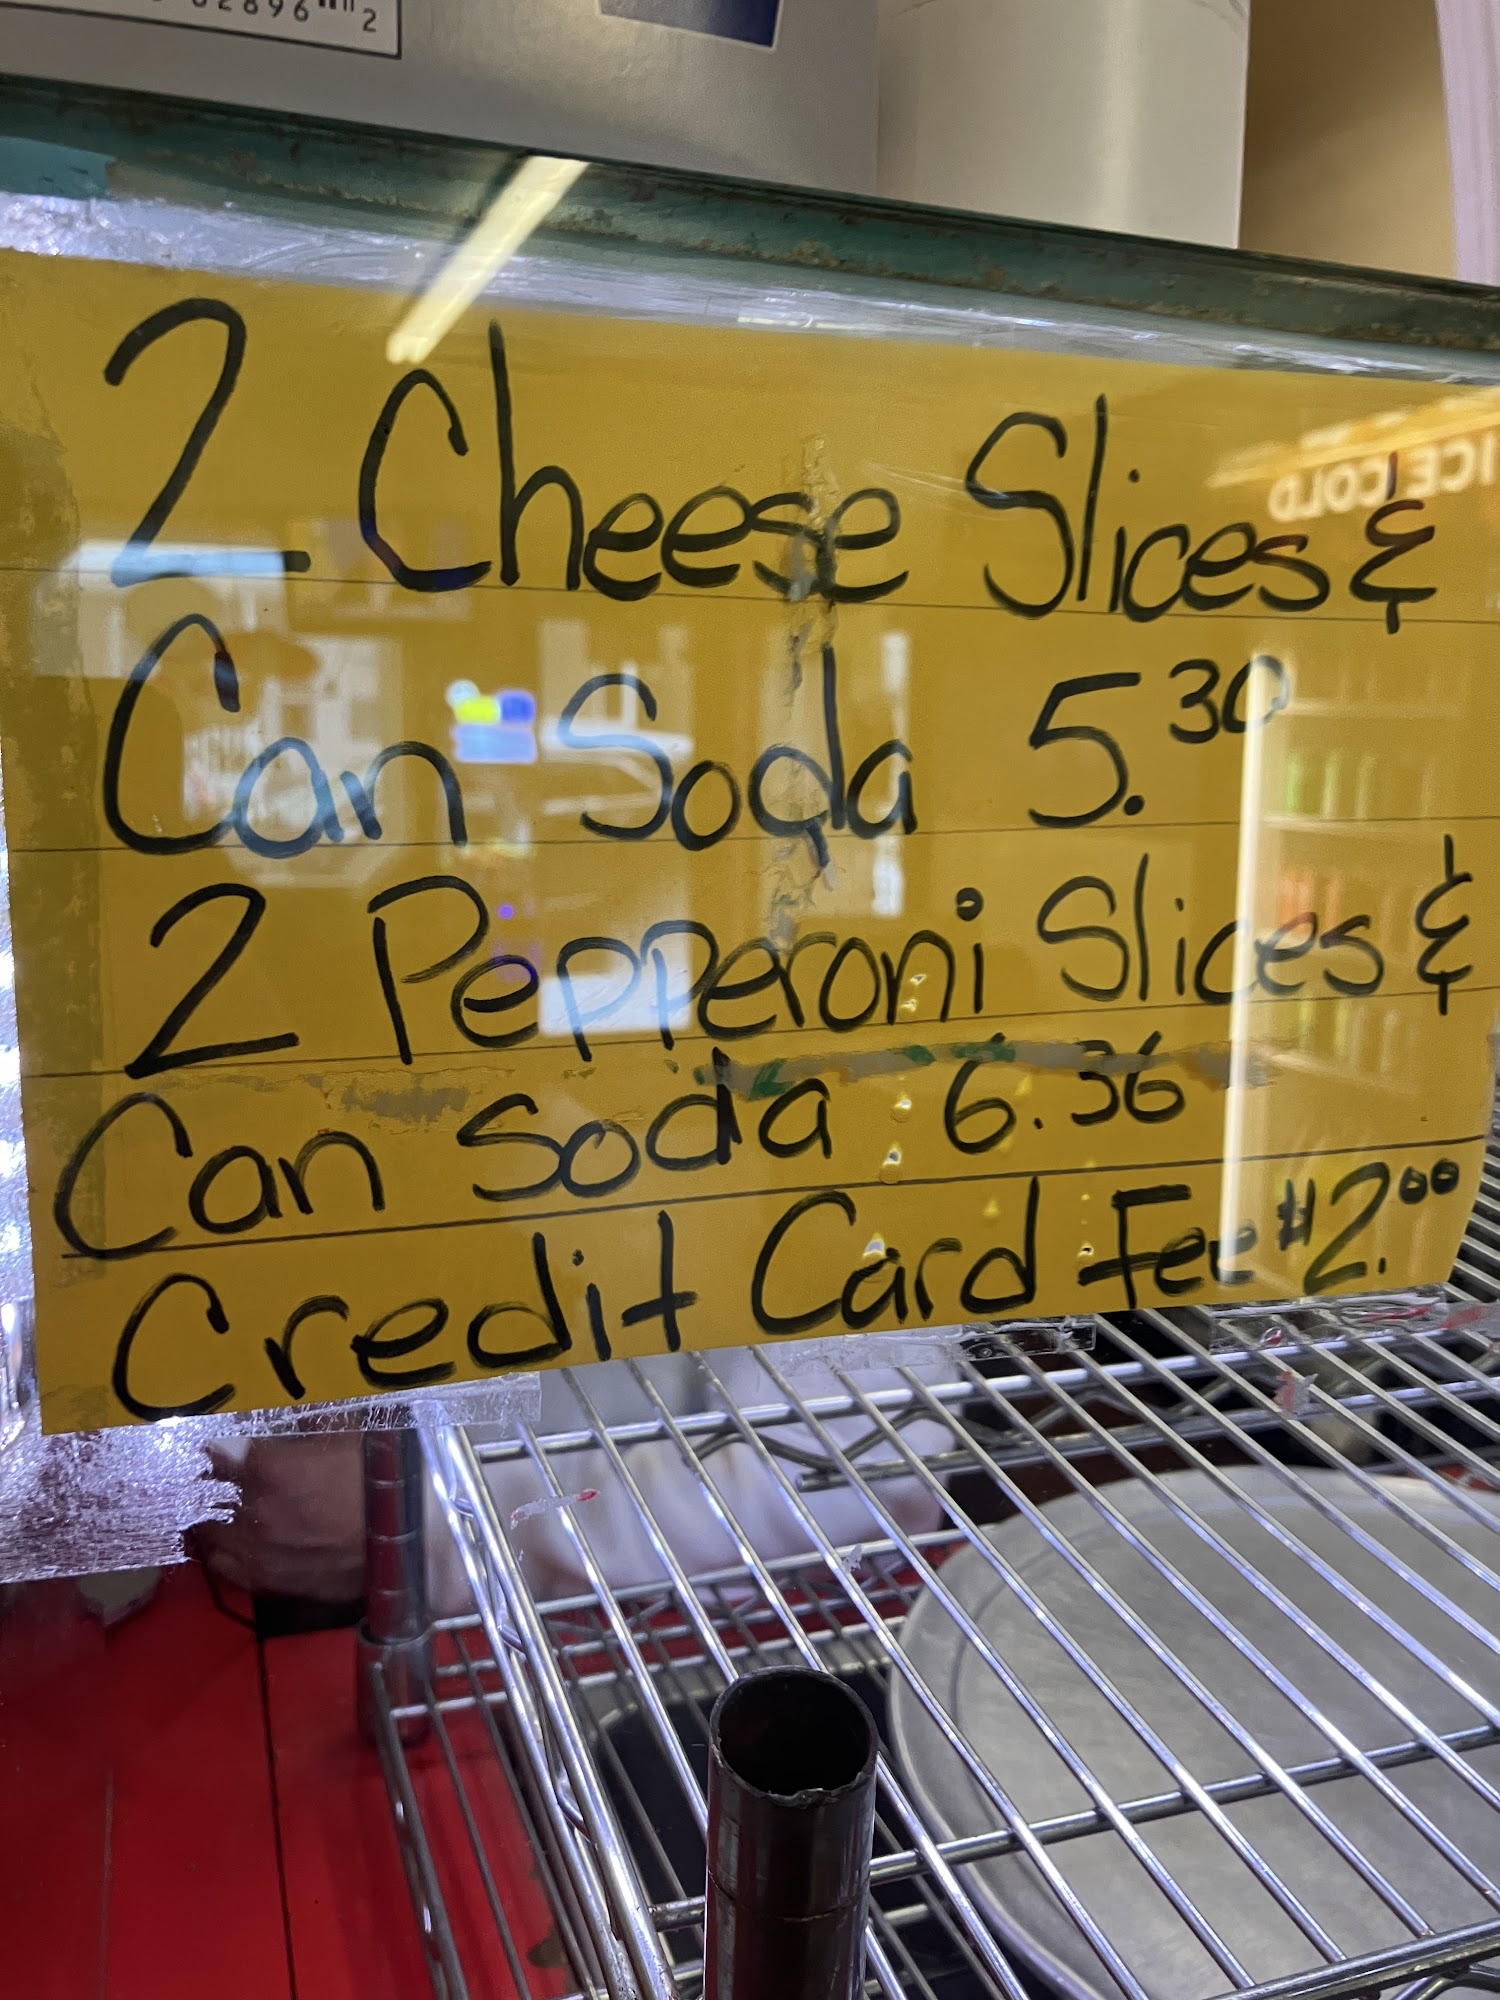 2 Cheese Slices &
Can Soda 5.30
2 Pepperoni Slices &
Can Soda 6.36
Credit Card Fee $2.00
ICE COLD